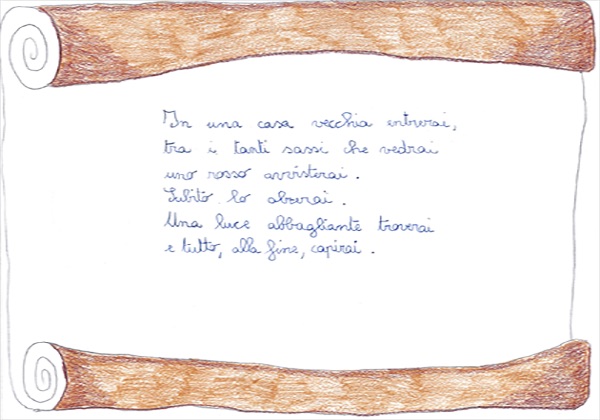 In una casa vecchia entrerai,
tra i tanti sassi che vedrai
uno rosso avvisterai.
Subito lo alzerai.
Una luce abbagliante troverai
e tutto, alla fine, capirai.